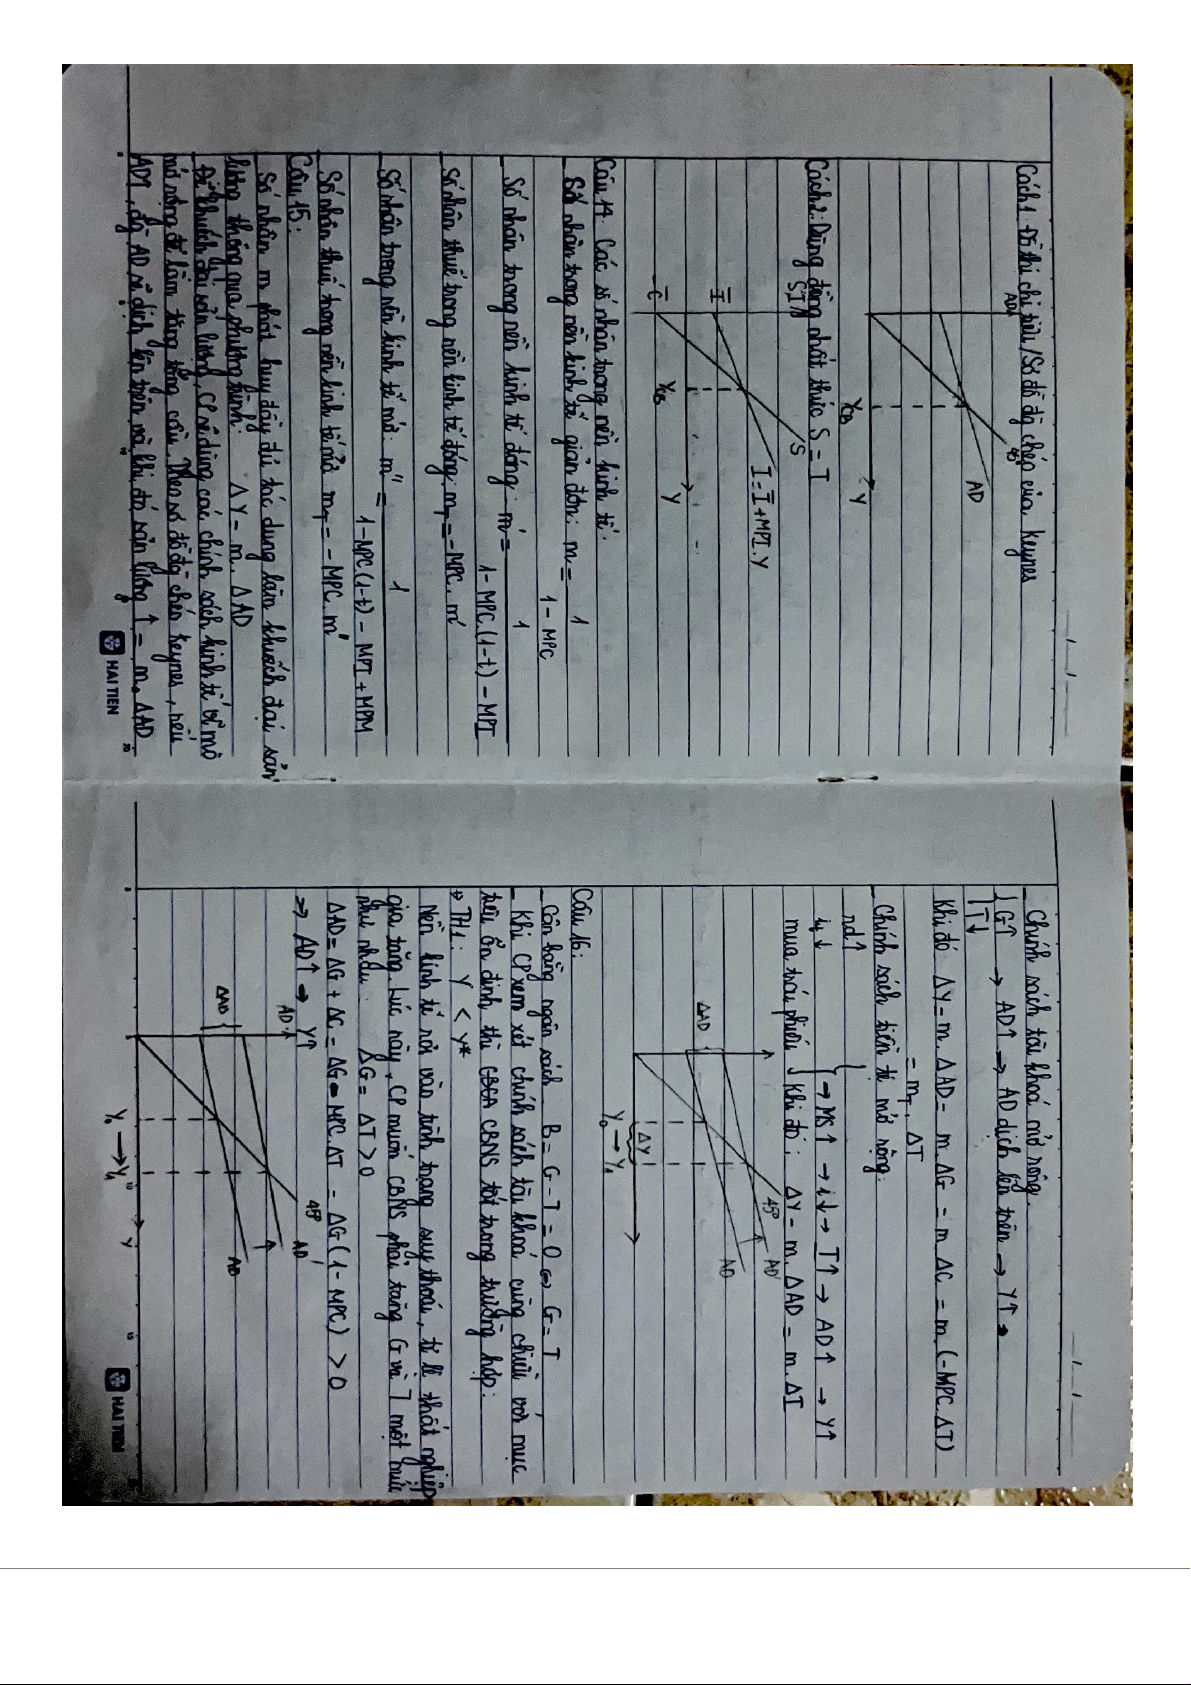 Cách 1: Đồ thị chi tiêu/Sơ đồ đg chéo của Keynes
AD
45°
AD
Y_CB
Y
Cách 2: Dùng đồng nhất thức S = I
S,I
S
I = I̅ + MPI.Y
I̅
-C̅
Y_CB
Y
Câu 14. Các số nhân trong nền kinh tế.
- Số nhân trong nền kinh tế giản đơn: m = 1 / (1 - MPC)
- Số nhân trong nền kinh tế đóng: m' = 1 / (1 - MPC.(1-t) - MPI)
- Số nhân thuế trong nền kinh tế đóng: m_T = -MPC. m'
- Số nhân trong nền kinh tế mở: m" = 1 / (1-MPC(1-t) - MPI + MPM)
- Số nhân thuế trong nền kinh tế mở m_T = - MPC. m"
Câu 15:
- Số nhân m phát huy đầy đủ tác dụng làm khuếch đại sản
lượng thông qua phương trình: ΔY = m. ΔAD
- Để khuếch đại sản lượng, CP sẽ dùng các chính sách kinh tế vĩ mô
mở rộng để làm tăng tổng cầu. Theo sơ đồ đg chéo Keynes, nếu
AD↑, đg AD sẽ dịch lên trên và khi đó sản lượng ↑ = m. ΔAD
HAI TIEN
- Chính sách tài khoá mở rộng.
{ G↑ → AD↑ → AD dịch lên trên → Y↑
T↓
Khi đó ΔY = m. ΔAD = m. ΔG = m. ΔC = m. (-MPC. ΔT)
= m_T. ΔT
- Chính sách tiền tệ mở rộng:
rd↑
i↓ } → MS↑ → i↓ → I↑ → AD↑ → Y↑
mua trái phiếu Khi đó: ΔY = m. ΔAD = m. ΔI
45°
AD'
AD
ΔAD
ΔY
Y₀ → Y₁
Câu 16:
- Cân bằng ngân sách B = G - T = 0 ⇔ G = T
- Khi CP xem xét chính sách tài khoá cùng chiều với mục
tiêu ổn định thì CBNS tốt trong trường hợp:
+ TH1: Y < Y*
Nền kinh tế rơi vào tình trạng suy thoái, tỉ lệ thất nghiệp
gia tăng. Lúc này, CP muốn CBNS phải tăng G và T một mức
như nhau: ΔG = ΔT > 0
ΔAD = ΔG + ΔC = ΔG - MPC. ΔT = ΔG (1 - MPC) > 0
⇒ AD↑ → Y↑
AD
45°
AD'
AD
ΔAD
Y₀ → Y₁
Y
HAI TIEN